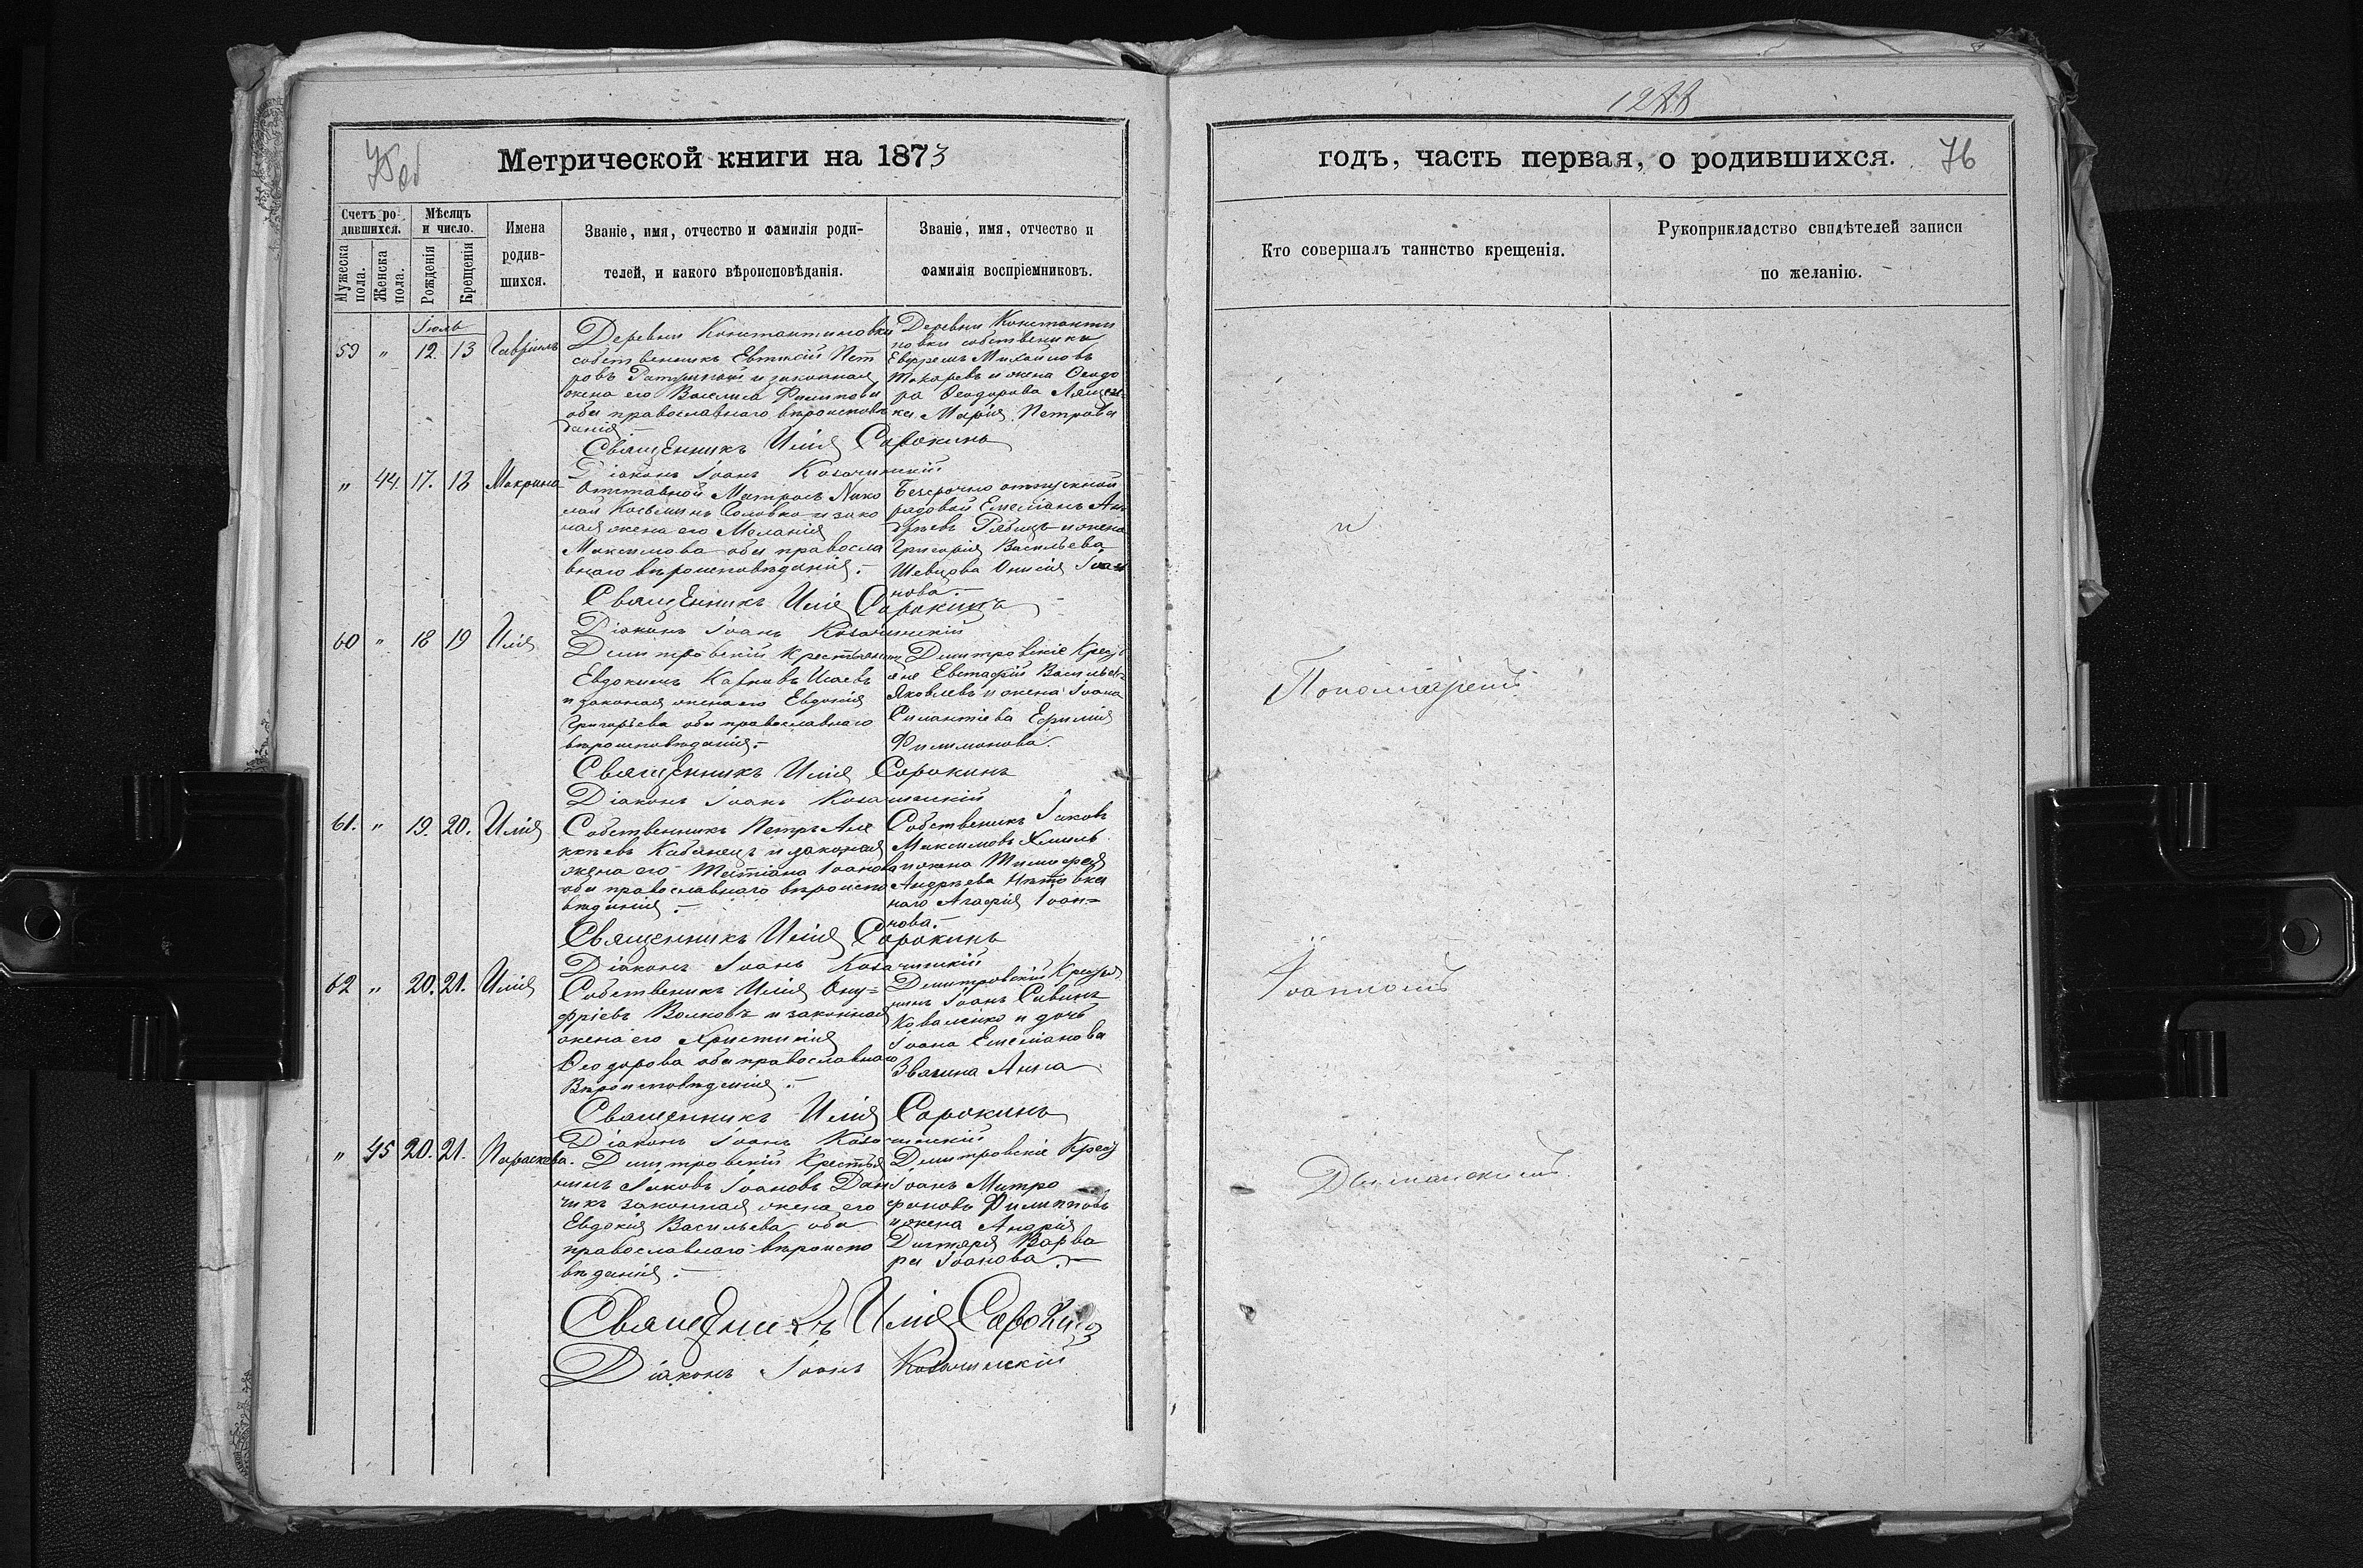 75об
Метрической книги на 1873
Счетъ ро-
дившихся.
Мужеска
пола.
Женска
пола.
Мѣсяцъ
и число.
Рожденія
Крещенія
Имена
родив-
шихся.
Званіе, имя, отчество и фамилія роди-
телей, и какого вѣроисповѣданія.
Званіе, имя, отчество и
фамилія воспріемниковъ.
Іюль
59 " 12. 13 Гавріилъ
Деревни Константиновки
собственникъ Евтихій Пет
ровъ и законная
жена его Василиса Филипова
оба православнаго вѣроисповѣ
данія.
Деревни Константи
новки собственикъ
Ефремъ Михайловъ
Токаревъ и жена Ѳеодо
ра Ѳеодорова
ка Марія Петрова
Священникъ Илія Сорокинъ
Діаконъ Іоанъ Козачинскій
" 44. 17. 18 Макрина
Отставной Матросъ Нико
лай Косьминъ Головко и зако
ная жена его Меланія
Максимова оба правосла
внаго вѣроисповѣданія.-
Безсрочно отпускной
рядовой Емеліанъ Ан
дрѣевъ Рябецъ и жена
Григорія Васильева
Шевцова Онисія Іоан
нова.-
Священникъ Илія Сорокинъ
Діаконъ Іоанъ Козачинскій
60 " 18 19 Илія
Димитровскій Крестьянинъ
Евдокимъ Карповъ Исаевъ
и законая жена его Евдокія
Григорьева оба православнаго
вѣроисповѣданія.-
Димитровскіе Крес
яне Евстафій Васильевъ
Яковлевъ и жена Іоана
Силантіева Ефимія
Филимонова.
Священникъ Илія Сорокинъ
Діаконъ Іоанъ Козачинскій
61. " 19. 20. Илія
Собственникъ Петръ Але
ксѣевъ Кабанецъ и законая
жена его Татіана Іоанова
оба православнаго вѣроиспо
вѣданія.-
Собственикъ Іаковъ
Максимовъ Хмиль
и жена Тимофея
Андрѣева
наго Агафія Іоан=
нова.-
Священникъ Илія Сорокинъ
Діаконъ Іоанъ Козачинскій
62 " 20. 21. Илія
Собственикъ Илія Ону=
фріевъ Волковъ и законная
жена его Христинія
Ѳеодорова оба православнаго
Вѣроисповѣданія.-
Димитровскій Крестья
нинъ Іоанъ Савинъ
Коваленко и дочь
Іоана Емеліанова
Звагина Анна
Священникъ Илія Сорокинъ
Діаконъ Іоанъ Козачинскій
" 45 20. 21. Параскева.
Димитровскій Крестья
нинъ Іаковъ Іоановъ Дан
чикъ законная жена его
Евдокія Васильева оба
православнаго вѣроиспо
вѣданія.-
Димитровскіе Крес
Іоанъ Митро
фановъ Филипповъ
и жена Андрія
Дигтяря Варва
ра Іоанова.-
Священникъ Илія Сорокинъ
Діаконъ Іоанъ Козачинскій
годъ, часть первая, о родившихся. 76
Кто совершалъ таинство крещенія.
Рукоприкладство свидѣтелей записи
по желанію.
Пономаремъ
Іоанномъ